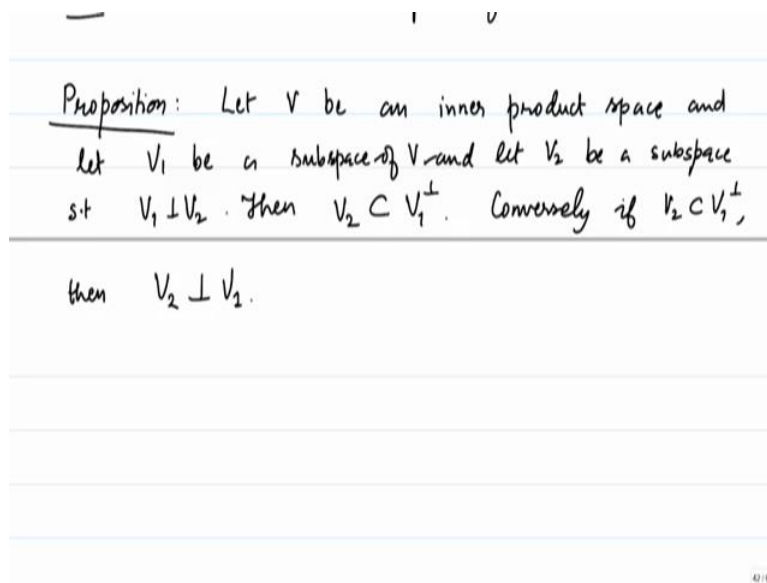 Proposition: Let V be an inner product space and
let V₁ be a subspace of V and let V₂ be a subspace
s.t V₁ ⊥ V₂. Then V₂ ⊂ V₁^⊥. Conversely if V₂ ⊂ V₁^⊥,
then V₂ ⊥ V₁.